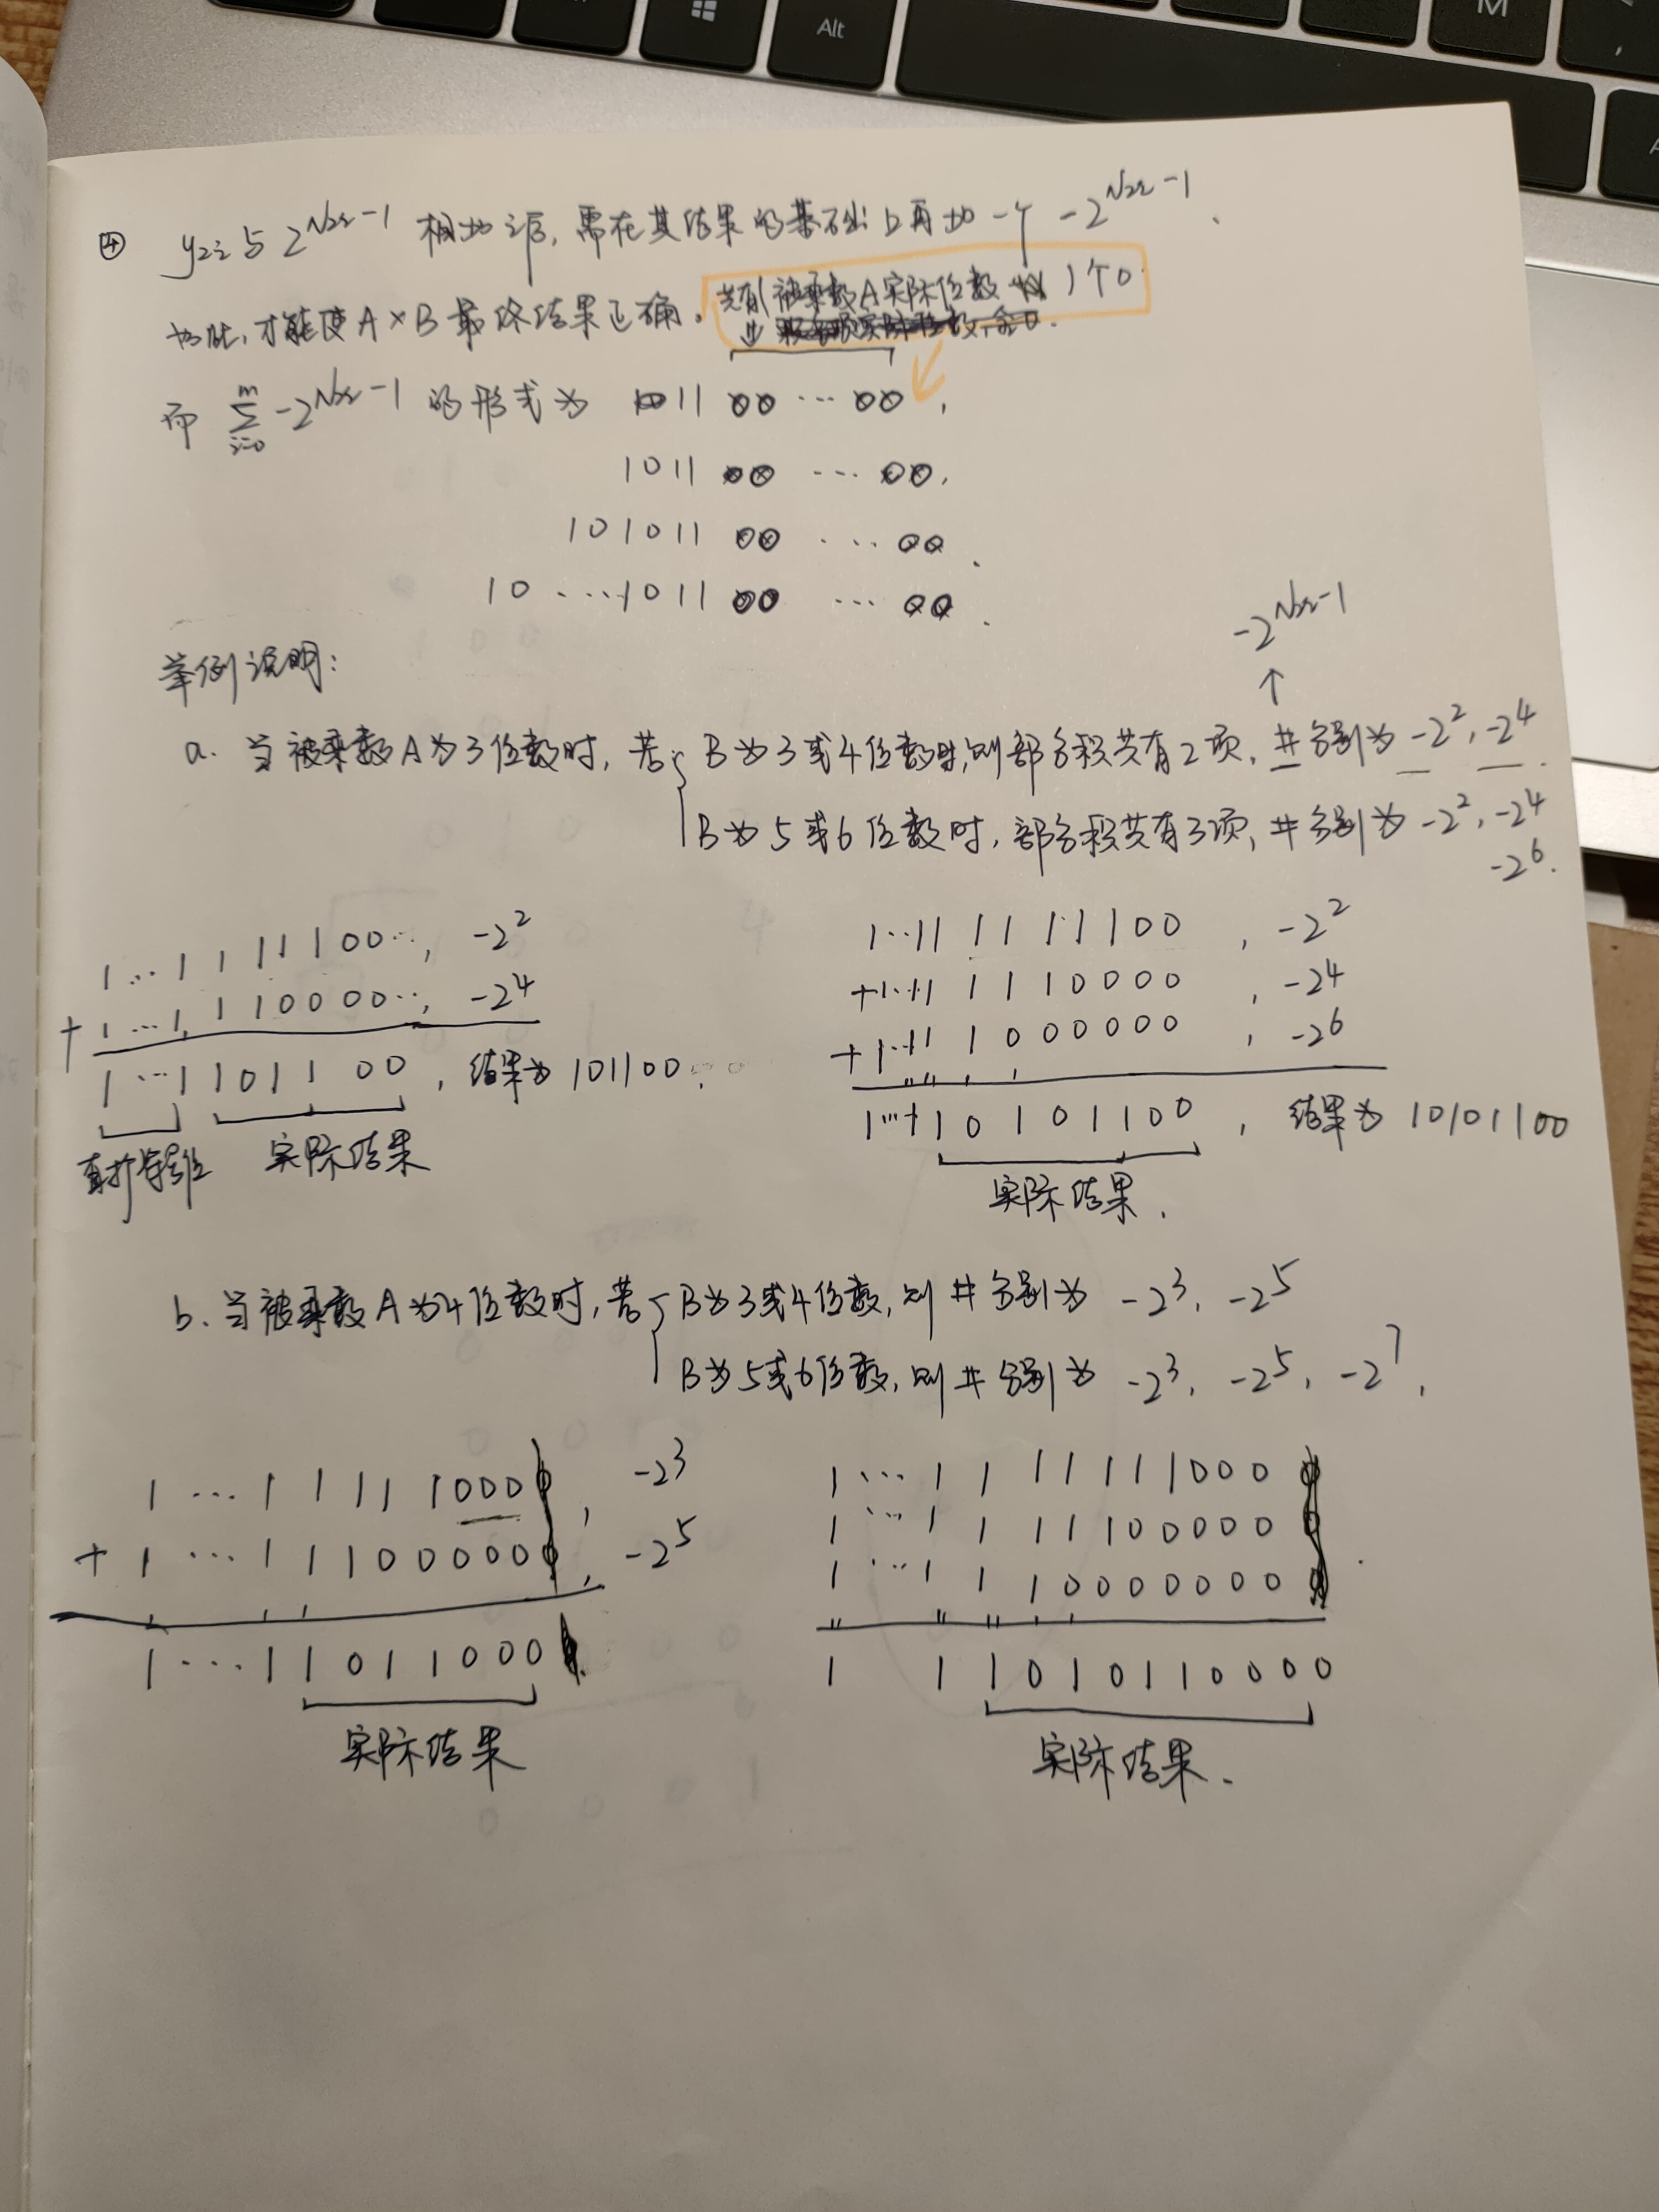 Alt
M
④ y2i 与 2^{N2i-1} 相加之后, 需在其结果的基础上再加一个 -2^{N2i-1}.
如此, 才能使 A×B 最终结果正确. 共有(被乘数A实际位数 )个0
而 \sum_{i=0}^{m} -2^{N2i-1} 的形式为 11 00 ... 00,
1011 00 ... 00,
101011 00 ... 00.
10 ... 1011 00 ... 00.
举例说明:
-2^{N2i-1}
↑
a. 当被乘数A为3位数时, 若{ B为3或4位数时,则部分积共有2项, #分别为 -2^2, -2^4.
B为5或6位数时, 部分积共有3项, #分别为 -2^2, -2^4
-2^6.
1 ... 1 1 1 1 1 0 0 ..., -2^2
+ 1 ... 1, 1 1 0 0 0 0 ..., -2^4
1 ... 1 1 0 1 1 0 0, 结果为 101100.
实际结果
1 ... 1 1 1 1 1 1 1 0 0, -2^2
+ 1 ... 1 1 1 1 0 0 0 0, -2^4
+ 1 ... 1 1 1 0 0 0 0 0 0, -2^6
1 ... 1 1 0 1 0 1 1 0 0, 结果为 10101100
实际结果.
b. 当被乘数A为4位数时, 若{ B为3或4位数, 则#分别为 -2^3, -2^5
B为5或6位数, 则#分别为 -2^3, -2^5, -2^7,
1 ... 1 1 1 1 1 0 0 0, -2^3
+ 1 ... 1 1 1 0 0 0 0 0, -2^5
1 ... 1 1 0 1 1 0 0 0
实际结果
1 ... 1 1 1 1 1 1 1 0 0 0
1 ... 1 1 1 1 1 0 0 0 0 0
1 ... 1 1 1 0 0 0 0 0 0 0
1 1 1 0 1 0 1 1 0 0 0 0
实际结果.